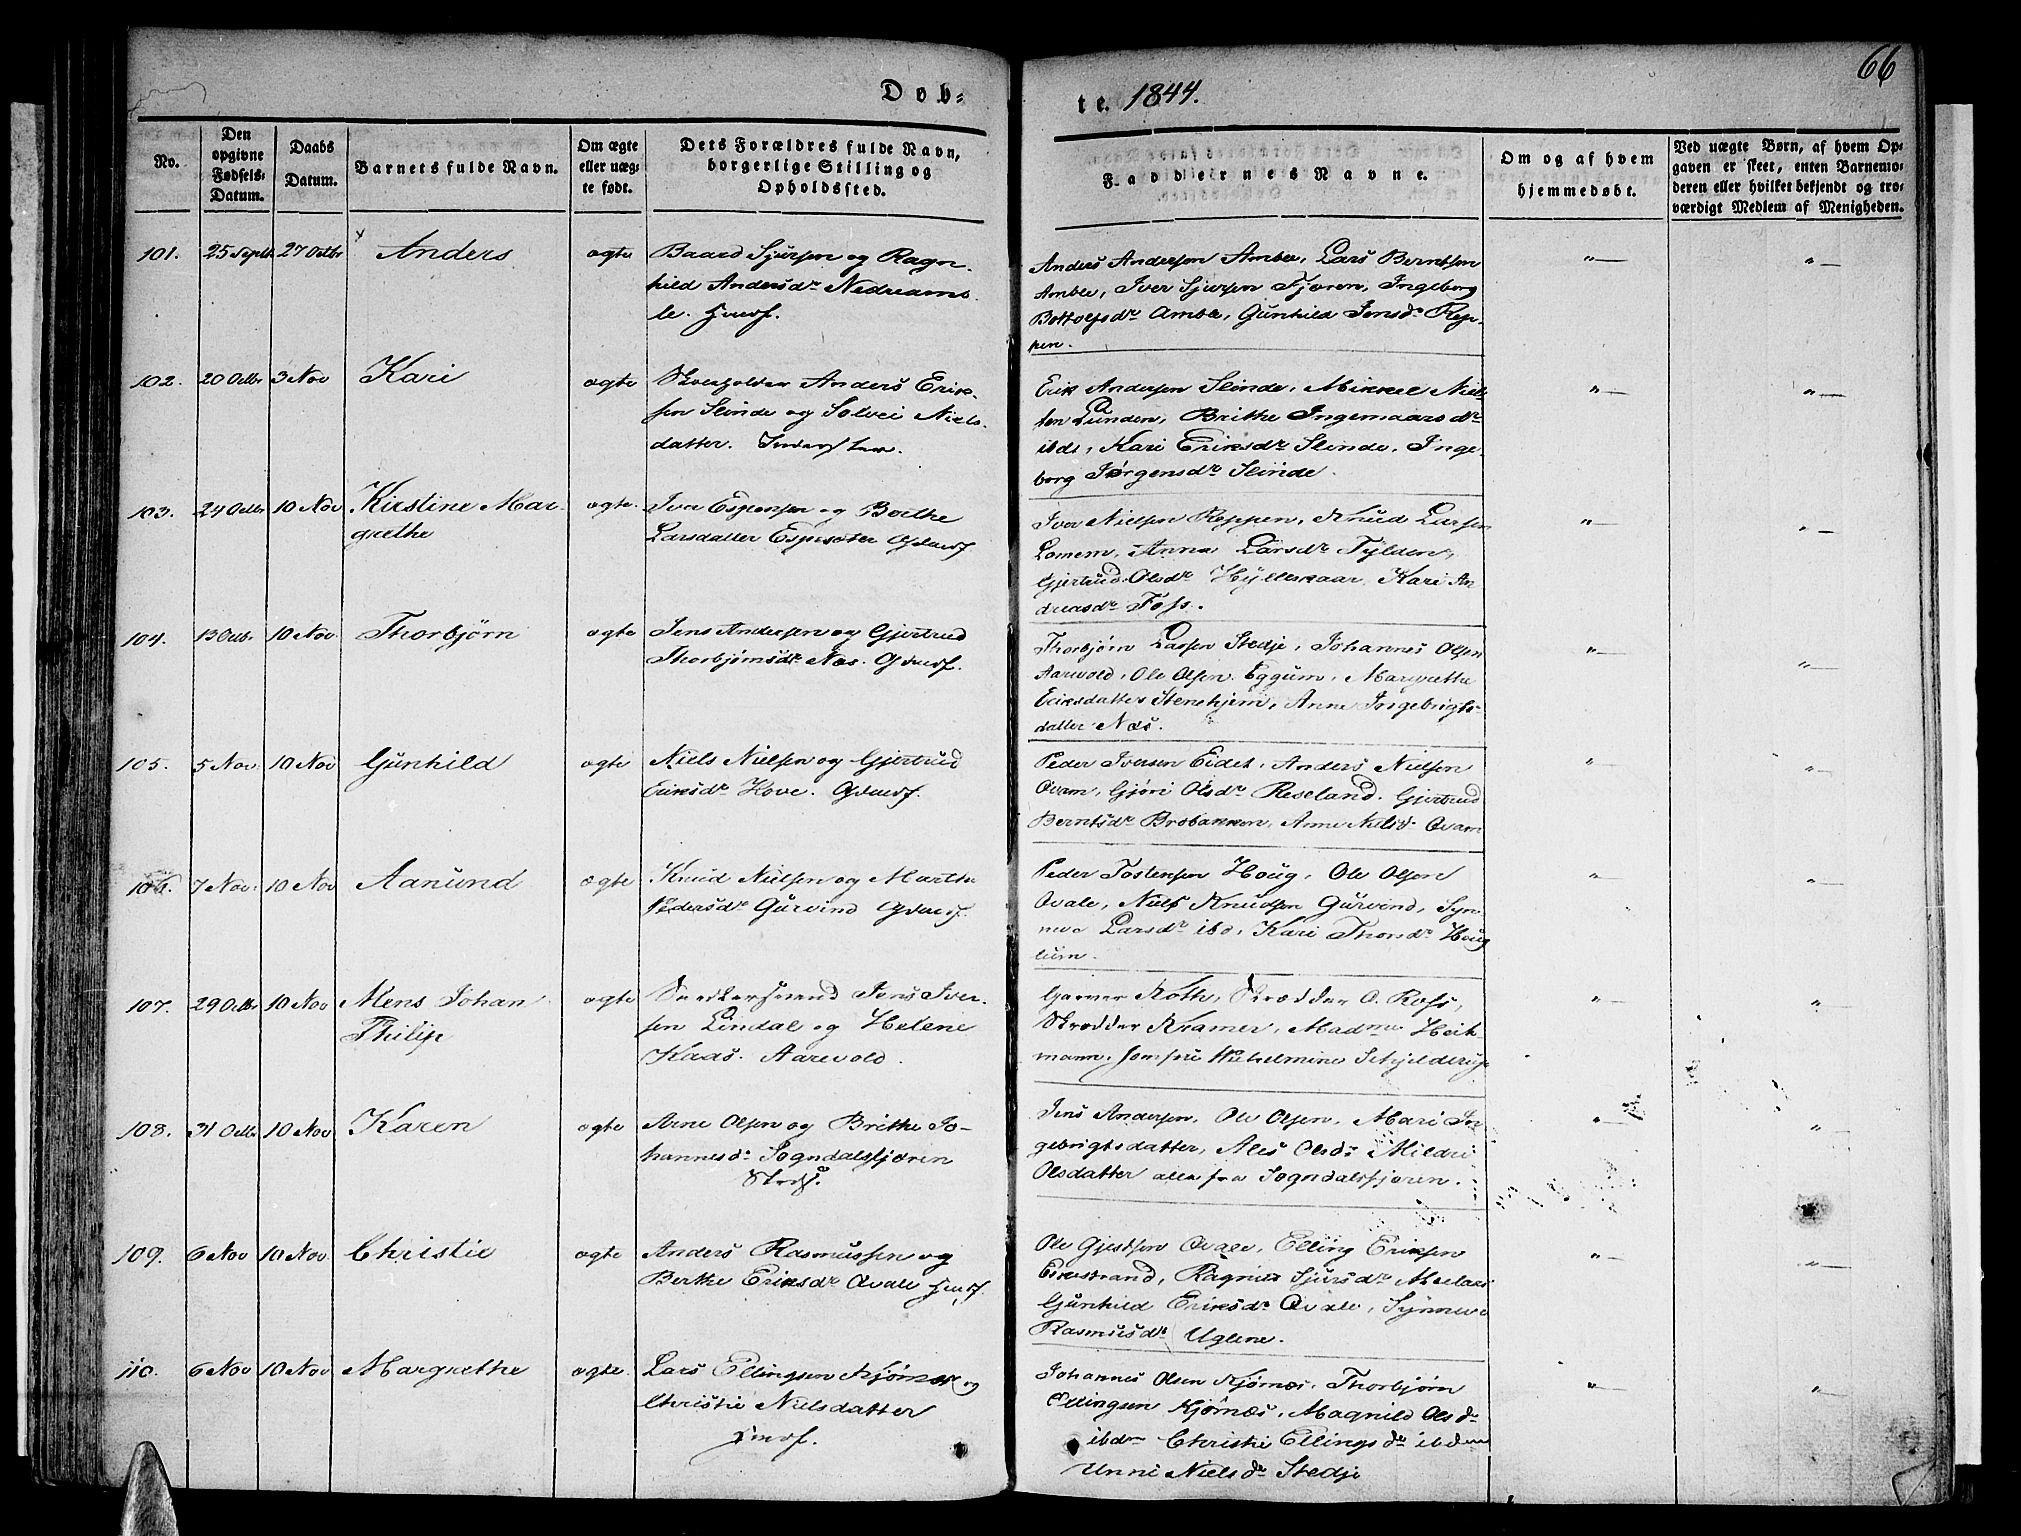 66
Døb-
te. 1844.
No.
Den opgivne Fødsels-Datum.
Daabs Datum.
Barnets fulde Navn.
Om ægte eller uægte født.
Dets Forældres fulde Navn, borgerlige Stilling og Opholdssted.
Faddernes Navne.
Om og af hvem hjemmedøbt.
Ved uægte Børn, af hvem Opgaven er skeet, enten Barnemoderen eller hvilket bekjendt og troværdigt Medlem af Menigheden.
101. 25 Septb 27 Octbr Anders ægte
Baard Sjursen og Ragn-
hild Andersdr Nedreamb-
le. Hmdf.
Anders Andersen Amble, Lars Berntsen
Amble, Iver Sjursen Fjæren, Ingeborg
Bottolfsdr Amble, Gunhild Jensdr Rep-
pen.
102. 20 Octbr 3 Nov Kari ægte
Anders Erik-
sen Slinde og Solvei Niels-
datter.
Erik Andersen Slinde, Mikkel Niel-
sen Lunden, Brithe Ingemaarsdr
ibd, Kari Eriksdr Slinde, Inge-
borg Jørgensdr Slinde.
103. 24 Octbr 10 Nov Kirstine Mar-
grethe ægte
Iver Espensen og Berthe
Larsdatter Espesæter Gdmdf
Iver Nielsen Reppen, Knud Larsen
Lomem, Anna Larsdr Fylden,
Gjertrud Olsdr Hylleskaar, Kari An-
dreasdr Foss.
104. 13 Octbr 10 Nov Thorbjørn ægte
Jens Andersen og Gjertrud
Thorbjørnsdr Næs. Gdmdf.
Thorbjørn Lassen Stedje, Johannes Olsen
Aarevold, Ole Olsen Eggum, Margrethe
Eriksdatter Stenehjem, Anne Ingebrigts-
datter Næs.
105. 5 Nov 10 Nov Gunhild ægte
Niels Nielsen og Gjertrud
Eriksdr Hove. Gdmdf.
Peder Iversen Eidet, Anders Nielsen
Qvam, Gjøri Olsdr Reseland, Gjertrud
Berntsdr Brobakken, Anne Nielsd Qvam
106. 7 Nov. 10 Nov Aamund ægte
Knud Nielsen og Marthe
Pedersdr Gurvind Gdmdf.
Peder Tostensen Houg, Ole Olsen
Qvale, Niels Knudsen Gurvind, Syn-
neve Larsdr ibd, Kari Thorsdr Houg
lum.
107. 29 Octbr 10 Nov Mens Johan
Philip ægte
Snedkersvend Jens Iver-
sen Lindal og Helene
Kaas. Aarevold.
Garver Roth, Skrædder O. Ross,
Skrædder Kramer, Madme Heik-
mann, Jomfru Wilhelmine Schjelderup
108. 31 Octbr 10 Nov Karen ægte
Arne Olsen og Brithe Jo-
hannesdr Sogndalsfjæren
Strds.
Jens Andersen, Ole Olsen, Mari In-
gebrigtsdatter, Ales Olsdr Mildri
Olsdatter alle fra Sogndalsfjæren.
109. 6 Nov 10 Nov Christie ægte
Anders Rasmussen og
Berthe Eriksdr Qvale Hmdf.
Ole Gjestsen Qvale, Elling Eriksen
Eikestrand, Ragnild Sjursdr
Gunhild Eriksdr Qvale, Synneve
Rasmusdr Uglene.
110. 6 Nov 10 Nov Margrethe ægte
Lars Ellingsen Kjørnæs og
Christie Nielsdatter
Hmdf.
Johannes Olsen Kjørnæs, Thorbjørn
Ellingsen Kjørnæs, Magnild Olsdr
ibdm Christie Ellingsdr ibdm
Unni Nielsdr Stedje